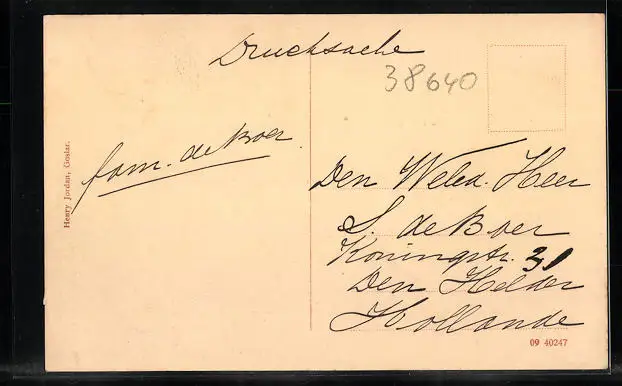 Drucksache
38640
fam. de Boer
Henry Jordan, Goslar.
Den Weled. Heer
S. de Boer
Koningstr. 31
Den Helder
Hollande
09 40247